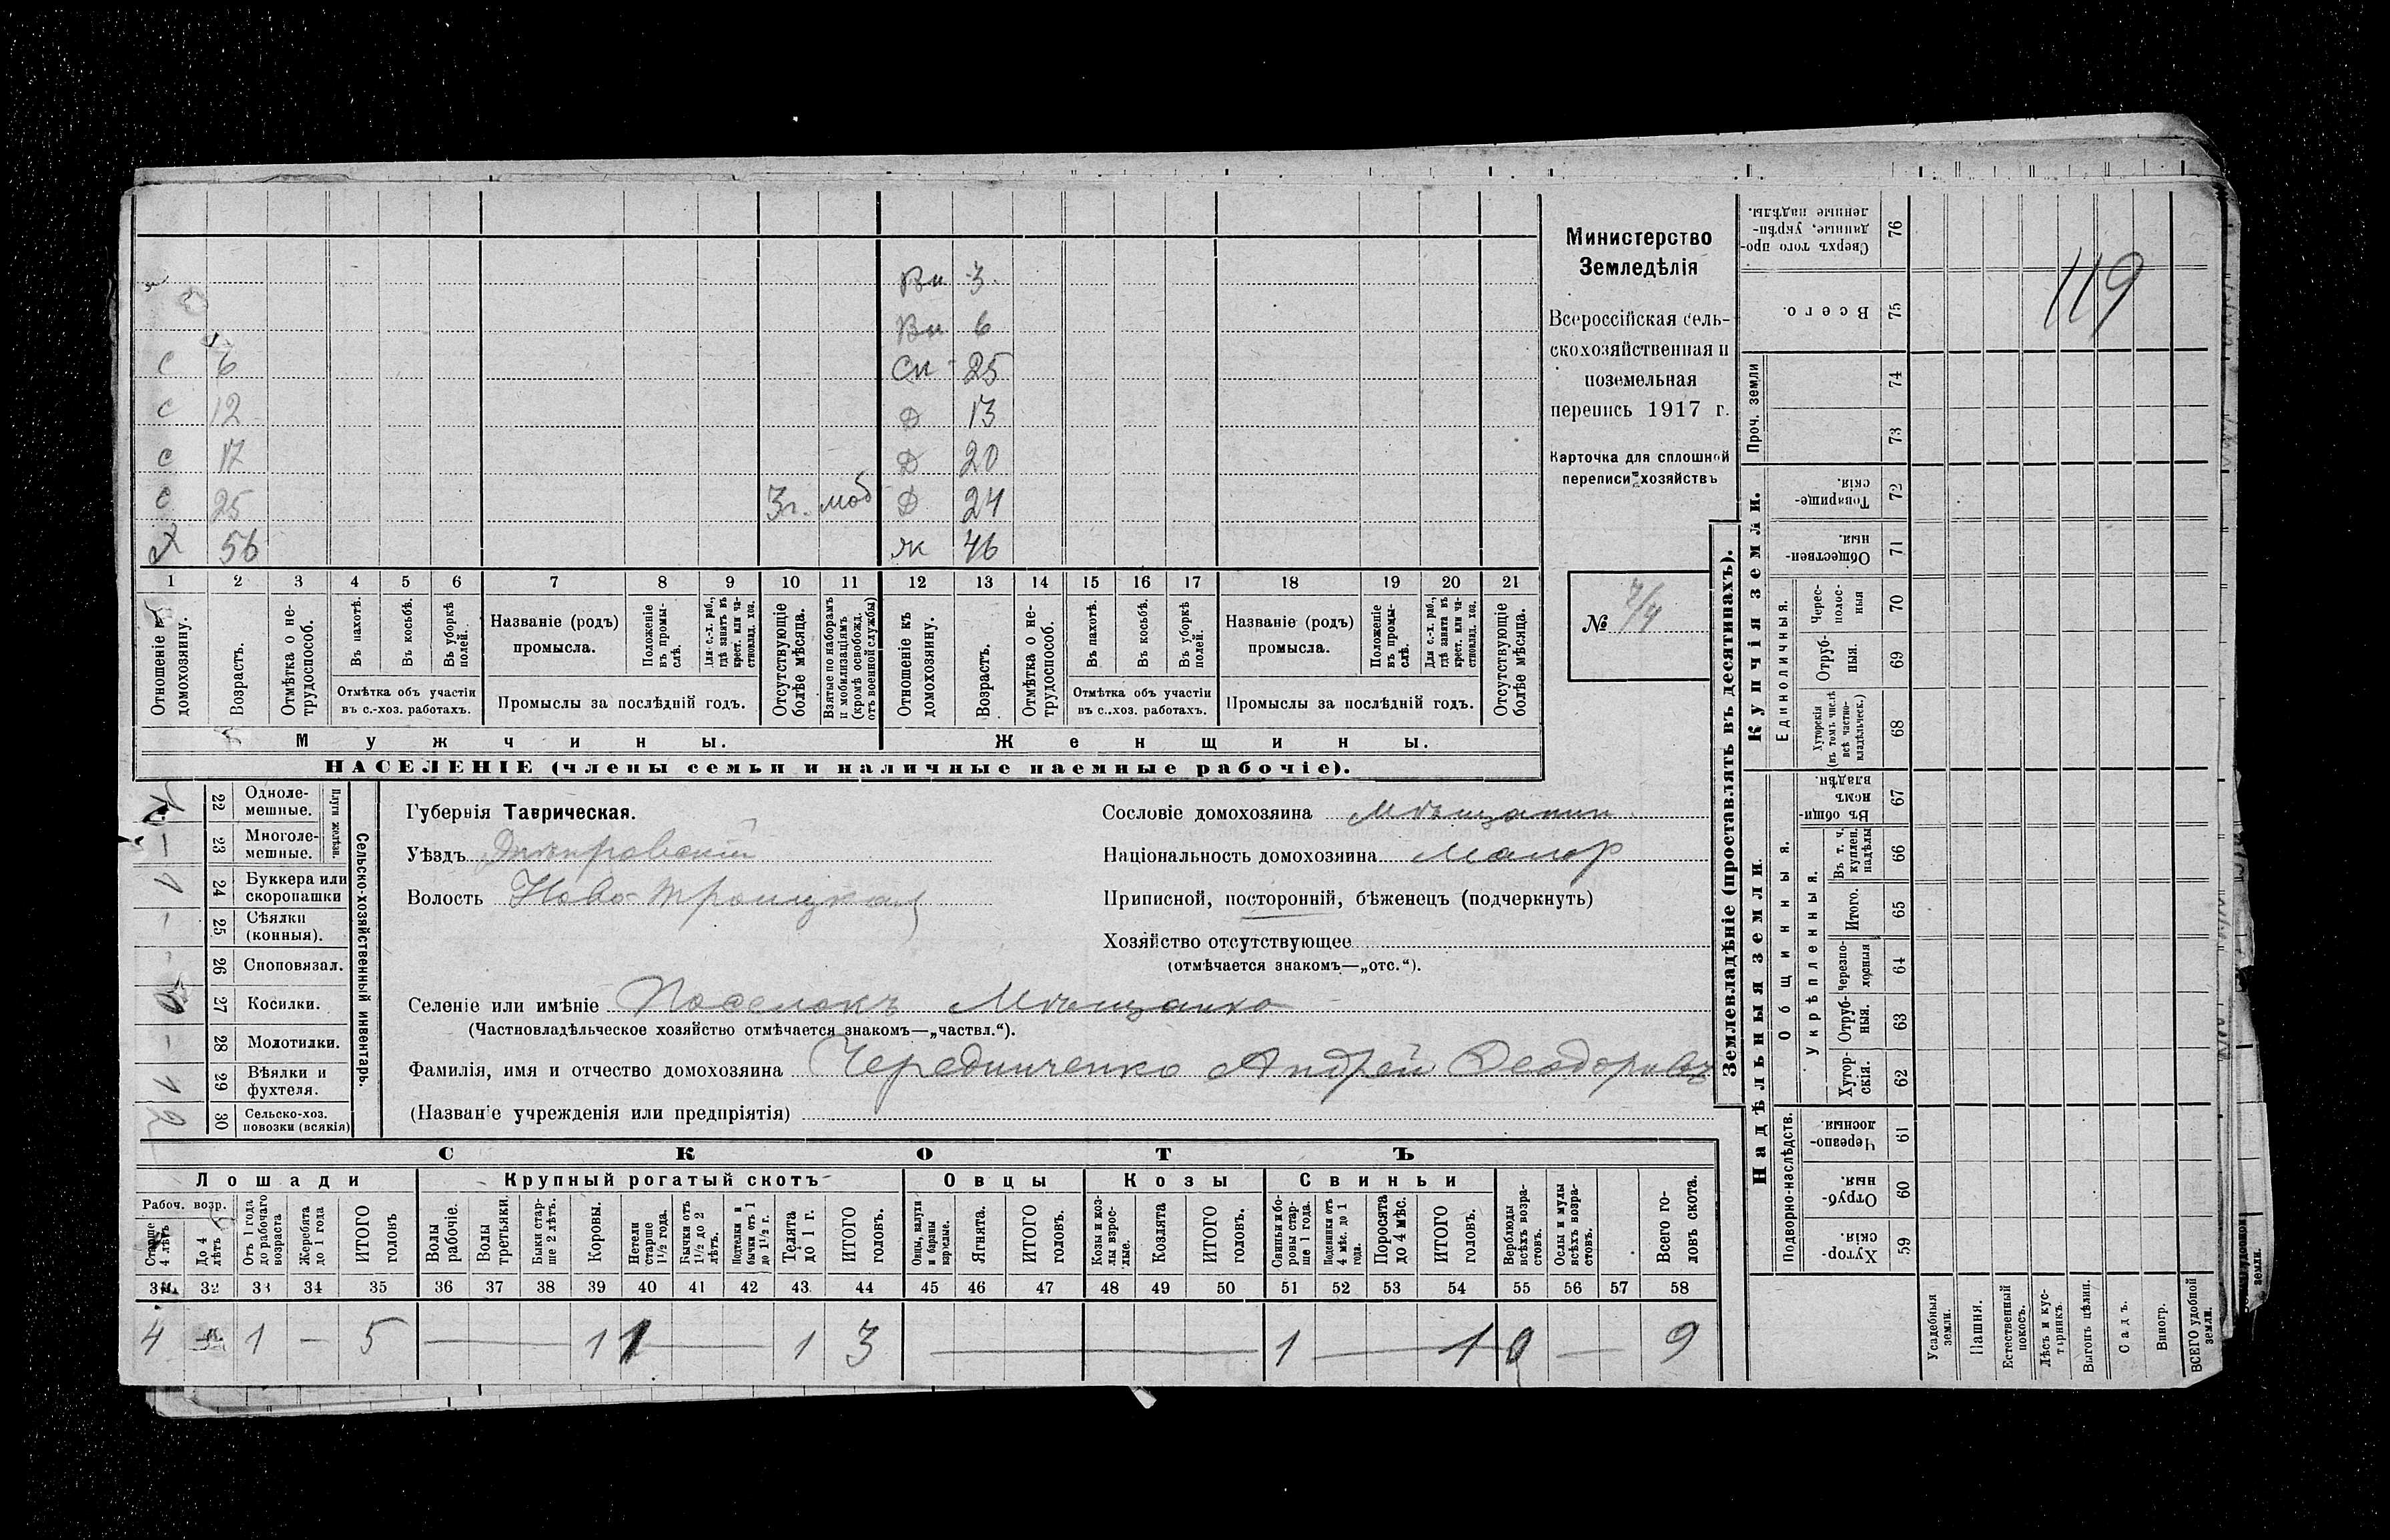 Вн 3
Вн 6
С 6 Сн 25
С 12 Д 13
С 17 Д 20
С 25 3 г. моб Д 24
Х 56 ж 46
1 2 3 4 5 6 7 8 9 10 11 12 13 14 15 16 17 18 19 20 21
Отношеніе къ домохозяину.
Возрастъ.
Отмѣтка о не-трудоспособ.
Въ пахотѣ.
Въ косьбѣ.
Въ уборкѣ полей.
Отмѣтка объ участіи въ с.-хоз. работахъ.
Названіе (родъ) промысла.
Положеніе въ промы-слѣ.
Для с.-х. раб., гдѣ занятъ въ крест. или ча-стновлад. хоз.
Промыслы за послѣдній годъ.
Отсутствующіе болѣе мѣсяца.
Взятые по наборамъ и мобилизаціямъ (кромѣ освобожд. отъ военной службы)
Отношеніе къ домохозяину.
Возрастъ.
Отмѣтка о не-трудоспособ.
Въ пахотѣ.
Въ косьбѣ.
Въ уборкѣ полей.
Отмѣтка объ участіи въ с.-хоз. работахъ.
Названіе (родъ) промысла.
Положеніе въ промы-слѣ.
Для с.-х. раб., гдѣ занята въ крест. или ча-стновлад. хоз.
Промыслы за послѣдній годъ.
Отсутствующіе болѣе мѣсяца.
Мужчины.
Женщины.
НАСЕЛЕНІЕ (члены семьи и наличные наемные рабочіе).
Министерство
Земледѣлія
Всероссійская сель-
скохозяйственная и
поземельная
перепись 1917 г.
Карточка для сплошной
переписи хозяйствъ
№ 7/4
Сельско-хозяйственный инвентарь.
Плуги желѣзн.
22 Одноле-мешные.
— 23 Многоле-мешные.
1 24 Буккера или скоропашки
- 25 Сѣялки (конныя).
- 26 Сноповязал.
27 Косилки.
- 28 Молотилки.
1 29 Вѣялки и фухтеля.
2 30 Сельско-хоз. повозки (всякія)
Губернія Таврическая.
Уѣздъ Днѣпровскій
Волость Ново-Троицкая
Сословіе домохозяина Мѣщанин
Національность домохозяина Малор
Приписной, посторонній, бѣженецъ (подчеркнуть)
Хозяйство отсутствующее
(отмѣчается знакомъ—„отс.“).
Селеніе или имѣніе Поселокъ Мѣщанка
(Частновладѣльческое хозяйство отмѣчается знакомъ—„частвл.“).
Фамилія, имя и отчество домохозяина Чередниченко Андрей Феодоровъ
(Названіе учрежденія или предпріятія)
СКОТЪ
Лошади
Крупный рогатый скотъ
Овцы
Козы
Свиньи
Рабоч. возр.
Старше 4 лѣтъ
До 4 лѣтъ
Отъ 1 года до рабочаго возраста
Жеребята до 1 года
ИТОГО головъ
Волы рабочіе.
Волы третьяки.
Быки стар-ше 2 лѣтъ.
Коровы.
Нетели старше 1½ года.
Бычки отъ 1½ до 2 лѣтъ.
Подтелки и бычки отъ 1 до 1½ г.
Телята до 1 г.
ИТОГО головъ.
Овцы, валухи и бараны взрослые.
Ягнята.
ИТОГО головъ.
Козы и коз-лы взрос-лые.
Козлята
ИТОГО головъ.
Свиньи и бо-ровы стар-ше 1 года.
Подсвинки отъ 4 мѣс. до 1 года.
Поросята до 4 мѣс.
ИТОГО головъ.
Верблюды всѣхъ возра-стовъ.
Ослы и мулы всѣхъ возра-стовъ.
Всего го-ловъ скота.
31 32 33 34 35 36 37 38 39 40 41 42 43 44 45 46 47 48 49 50 51 52 53 54 55 56 57 58
4 1 — 5 — 1 1 — 1 3 — 1 — 1 — 9
Землевладѣніе (проставлять въ десятинахъ).
Купчія земли.
Надѣльныя земли
Проч. земли
Единоличныя.
Общинныя.
Укрѣпленныя.
Подворно-наслѣдств.
Сверхъ того про-данные, укрѣп-ленные надѣлы. 76
Всего. 75
74
73
Товарище-скія. 72
Обществен-ныя. 71
Черес-полос-ныя 70
Отруб-ныя. 69
Хуторскія (въ томъ числѣ всѣ частно-владѣльческ.) 68
Въ общи-номъ владѣн. 67
Въ т. ч. куплен. надѣлы 66
Итого. 65
Черезпо-лосныя 64
Отруб-ныя. 63
Хутор-скія. 62
Черезпо-лосныя. 61
Отруб-ныя. 60
Хутор-скія. 59
Усадебныя земли.
Пашня.
Естественный покосъ.
Лѣсъ и кус-тарникъ.
Выгонъ цѣлин.
Садъ.
Виногр.
ВСЕГО удобной земли.
119